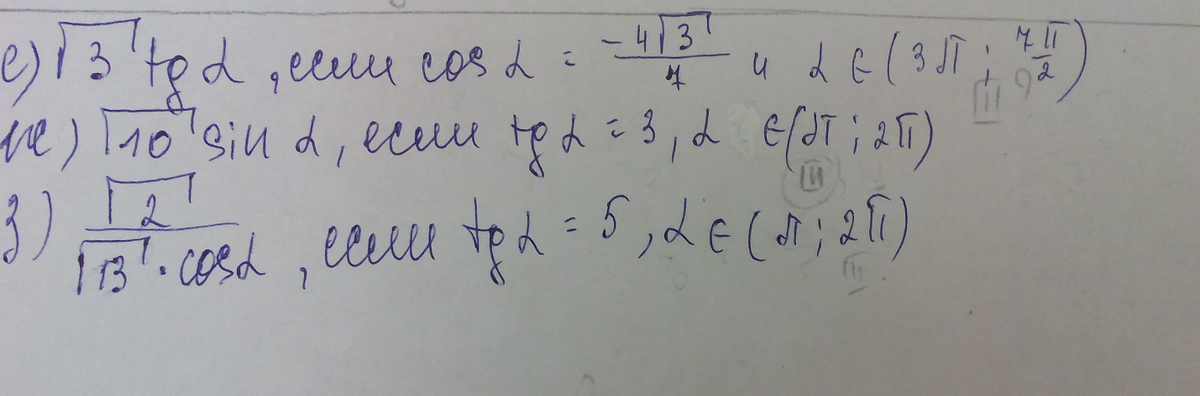 е) √3 tg α, если cos α = -4√3/7 и α ∈ (3π; 7π/2)
III ?
ж) √10 sin α, если tg α = 3, α ∈ (π; 2π)
III
з) √2/√13 · cos α, если tg α = 5, α ∈ (π; 2π)
III